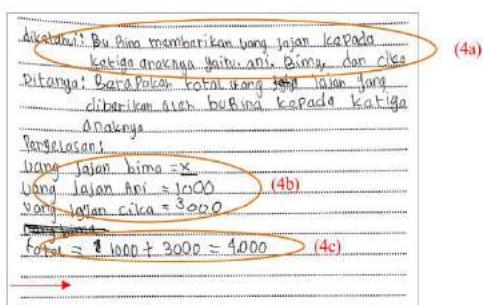 diketahui: Bu Bina memberikan uang jajan kepada
ketiga anaknya yaitu. ani. Bima, dan cika
(4a)
Ditanya: Berapakah total uang jajan yang
diberikan oleh bu Bina kepada ketiga
anaknya
Penyelasan:
uang jajan bima = x
uang jajan Ani = 1000
(4b)
uang jajan cika = 3000
total = 1000 + 3000 = 4.000
(4c)